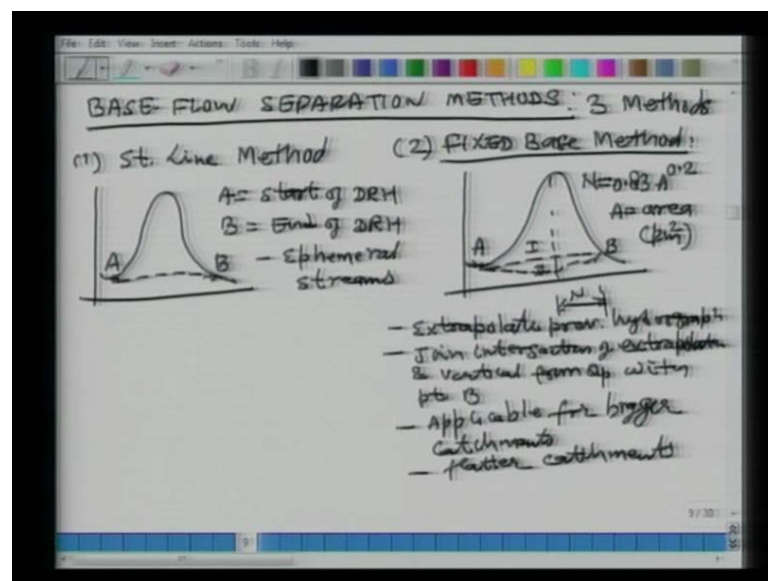 File Edit View Insert Actions Tools Help
BASE FLOW SEPARATION METHODS: 3 Methods
(1) St. Line Method
A
B
A = Start of DRH
B = End of DRH
- Ephemeral streams
(2) FIXED Base Method:
N=0.83 A^0.2
A = area
(km²)
A
I
B
II
N
- Extrapolate prev. hydrograph
- Join intersection of extrapolation
& vertical from Qp with
pt B
- Applicable for bigger
catchments
- flatter catchments
9/30
9